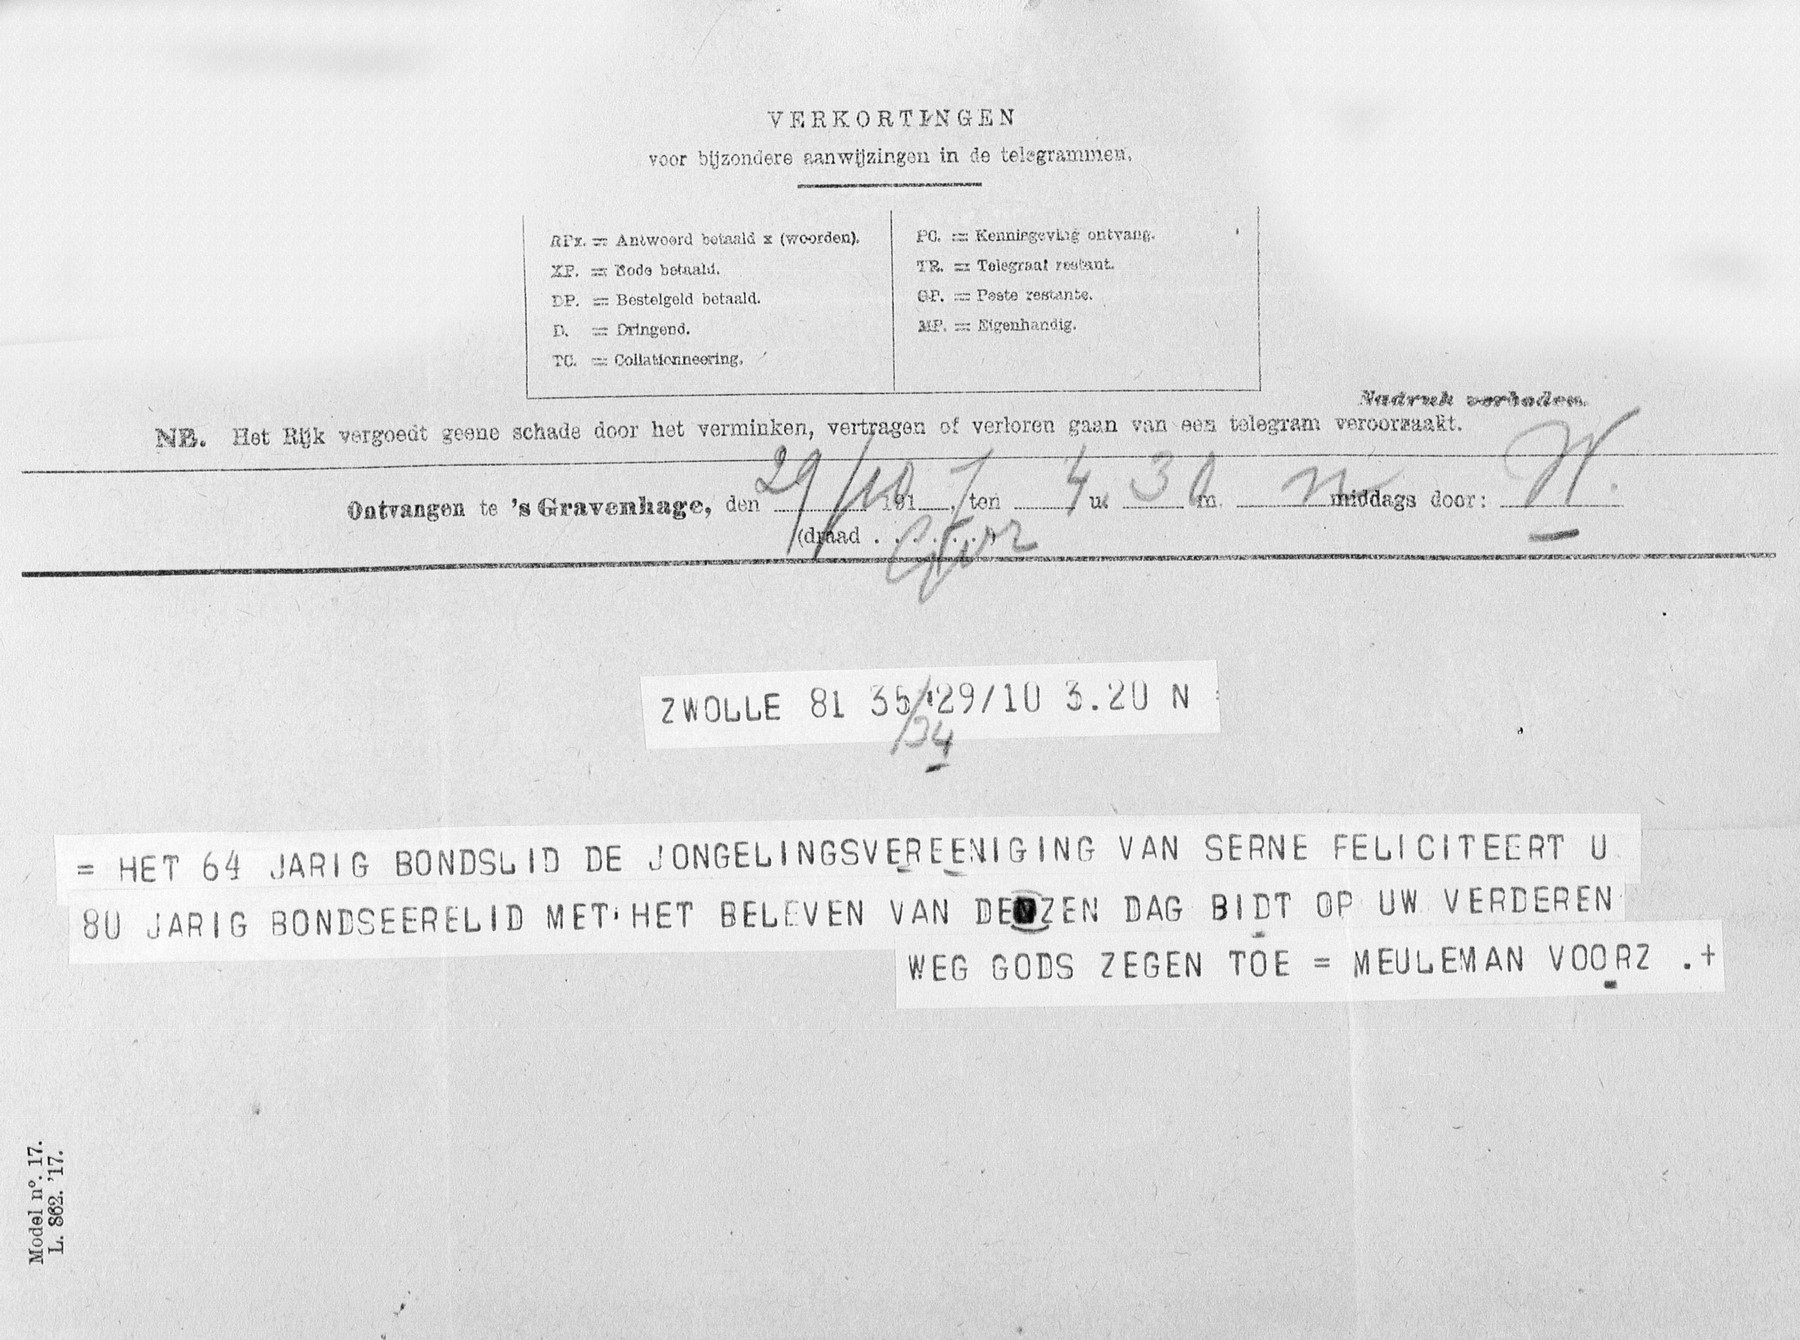 VERKORTINGEN
voor bijzondere aanwijzingen in de telegrammen.
RPx. = Antwoord betaald x (woorden).
XP. = Bode betaald.
DP. = Bestelgeld betaald.
D. = Dringend.
TC. = Collationneering.
PC. = Kennisgeving ontvang.
TR. = Telegraaf restant.
GP. = Poste restante.
MP. = Eigenhandig.
Nadruk verboden.
NB. Het Rijk vergoedt geene schade door het verminken, vertragen of verloren gaan van een telegram veroorzaakt.
Ontvangen te 's Gravenhage, den 29/10 191 7, ten 4 u. 30 m. n middags door:
(draad . . . . . . . )
ZWOLLE 81 35/ 29/10 3.20 N
34
= HET 64 JARIG BONDSLID DE JONGELINGSVEREENIGING VAN SERNE FELICITEERT U
80 JARIG BONDSEERELID MET HET BELEVEN VAN DEZEN DAG BIDT OP UW VERDEREN
WEG GODS ZEGEN TOE = MEULEMAN VOORZ .+
Model nº. 17.
L. 862. '17.